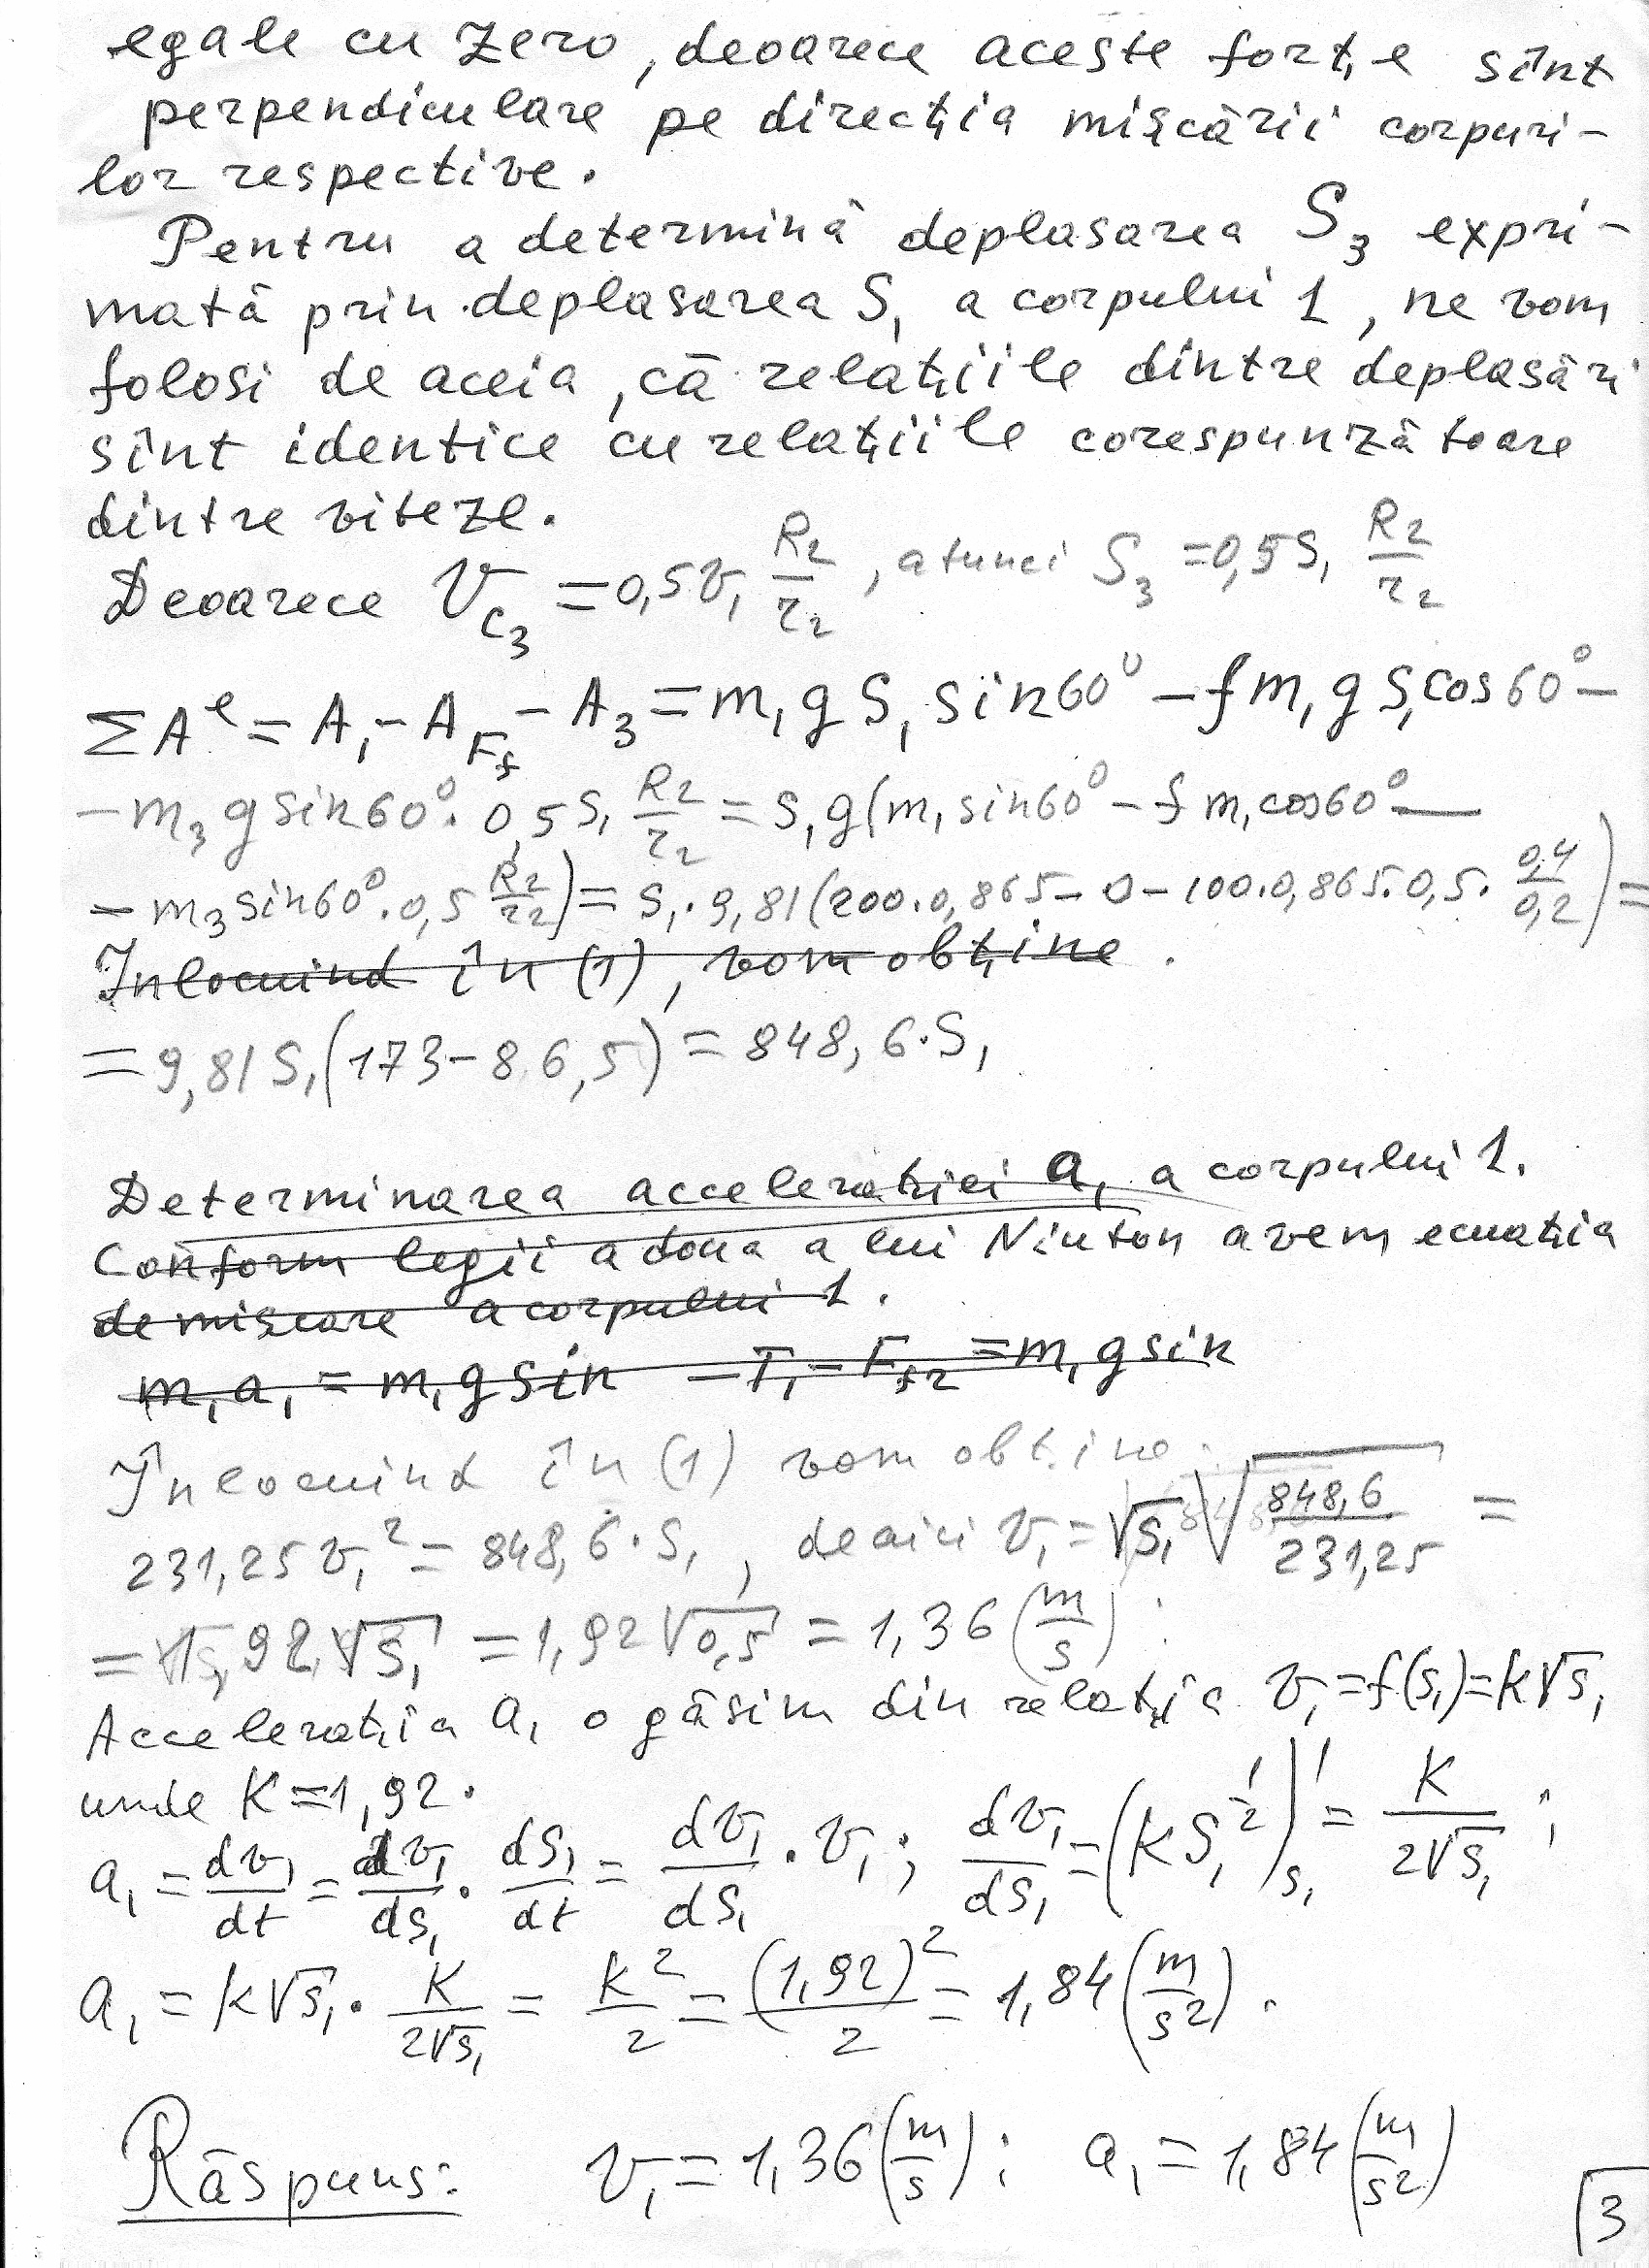 egale cu zero, deoarece aceste forțe sînt
perpendiculare pe direcția mișcării corpuri-
lor respective.
Pentru a determină deplasarea S₃ expri-
mată prin deplasarea S₁ a corpului 1, ne vom
folosi de aceia, că relațiile dintre deplasări
sînt identice cu relațiile corespunzătoare
dintre viteze.
Deoarece V_C₃ = 0,5v₁ R₂/r₂, atunci S₃ = 0,5S₁ R₂/r₂
ΣAᵉ = A₁ - A_Ff - A₃ = m₁gS₁ sin60° - fm₁gS₁cos60° -
- m₃g sin60° · 0,5S₁ R₂/r₂ = S₁g(m₁ sin60° - fm₁cos60° -
- m₃sin60° · 0,5 R₂/r₂) = S₁·9,81(200·0,865 - 0 - 100·0,865·0,5· 0,4/0,2) =
Inlocuind în (1), vom obține.
= 9,81S₁(173 - 86,5) = 848,6·S₁
Determinarea accelerației a₁ a corpului 1.
Conform legii a doua a lui Niuton avem ecuația
de mișcare a corpului 1.
m₁a₁ = m₁g sin - T₁ - F_f2 = m₁g sin
Înlocuind în (1) vom obține:
231,25v₁² = 848,6·S₁, de aici v₁ = √S₁ √(848,6/231,25) =
= 1,92√S₁ = 1,92√0,5 = 1,36 (m/s);
Accelerația a₁ o găsim din relația v₁ = f(s₁) = k√s₁
unde K = 1,92.
a₁ = dv₁/dt = dv₁/ds₁ · dS₁/dt = dv₁/dS₁ · v₁; dv₁/dS₁ = (kS₁^(1/2))'_S₁ = K/(2√S₁);
a₁ = k√S₁ · K/(2√S₁) = k²/2 = (1,92)²/2 = 1,84 (m/s²).
Răspuns: v₁ = 1,36 (m/s); a₁ = 1,84 (m/s²)
3